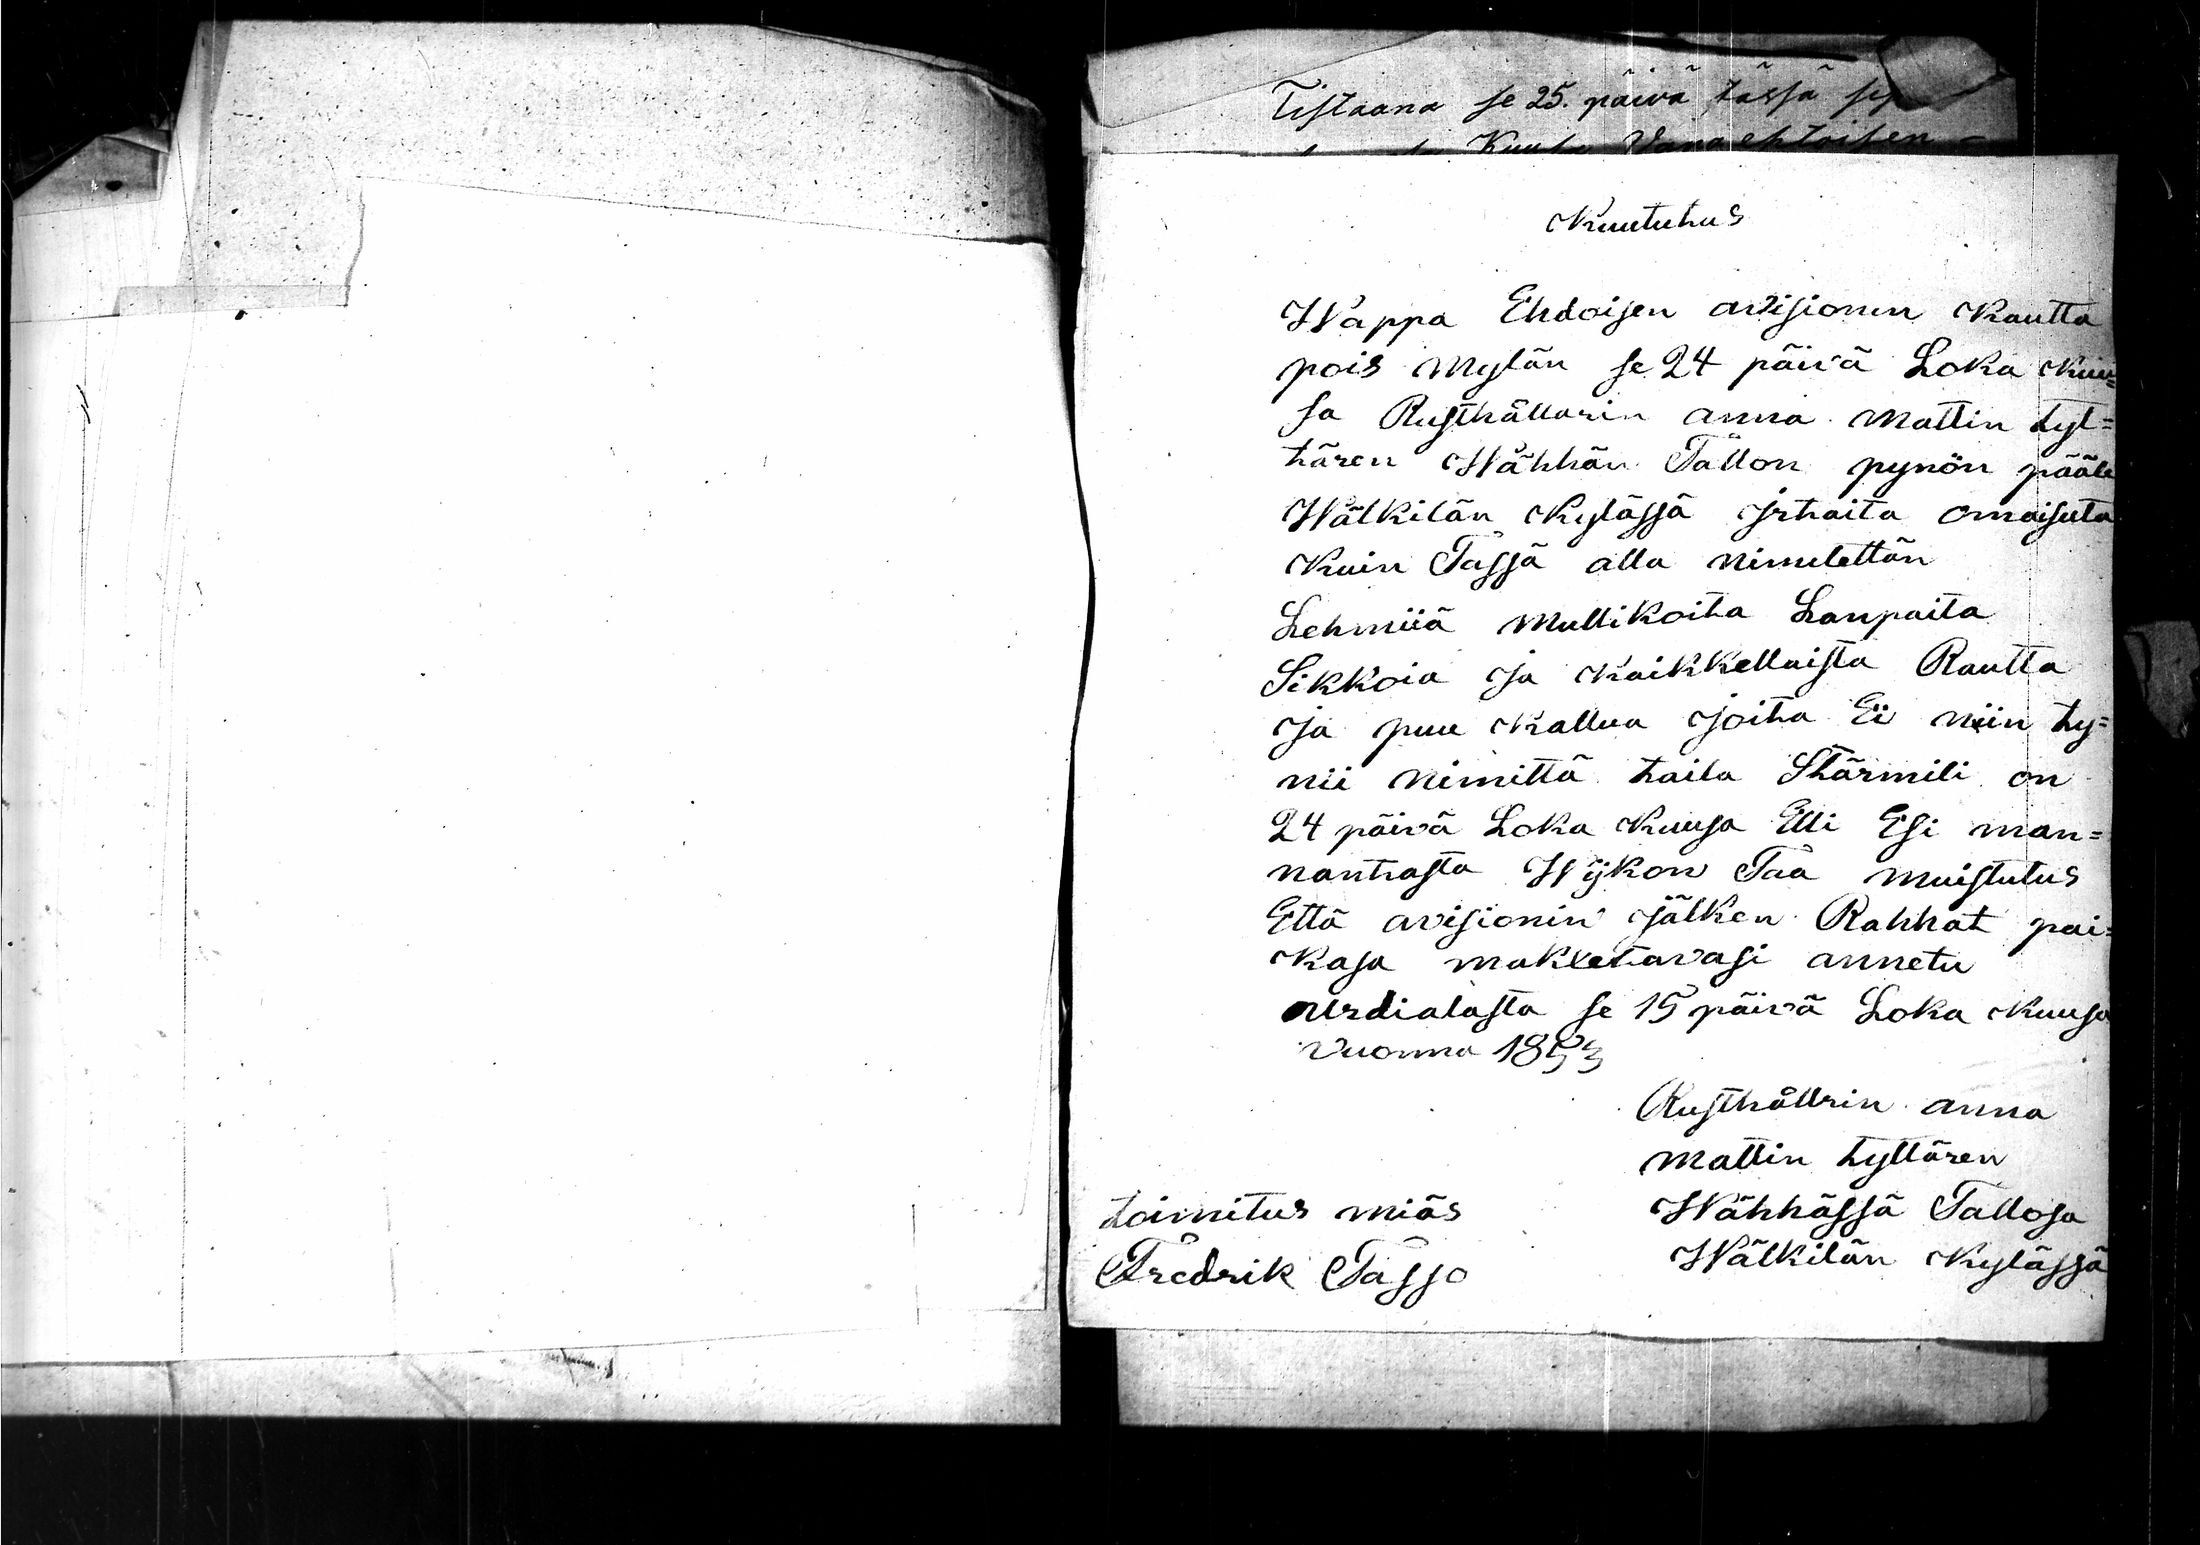 Tistaana se 25. päivä tässä sy
Kuulu Vapaehtoisen
Kuutuhus
Wappa Ehdoisen avisionin Kautta
pois Mylän se 24 päivä Loka Kuu=
sa Rusthållarin anna Mattin tyt=
tären Wähhän Tallon pynön pääle
Wälkilän Kylässä irtaita omaisuta
Kuin Tässä alla nimitettän
Lehmiiä Mullikoita Lanpaita
Sikkoia ja Kaikkellaista Rautta
ja puu Kallua joita Ei niin ty=
nii nimittä taita Stärmili on
24 päivä Loka Kuusa Elli Esi man=
nantasta Wijkon Tää muistutus
Että avisionin jälken Rahhat pai=
Kasa maksetavasi annetu
Urdialasta se 15 päivä Loka Kuusa
Vuonna 1853
Rusthållrin anna
Mattin tyttären
Wähhässä Tallosa
Wälkilän Kylässä
toimitus miäs
Fredrik Tässo